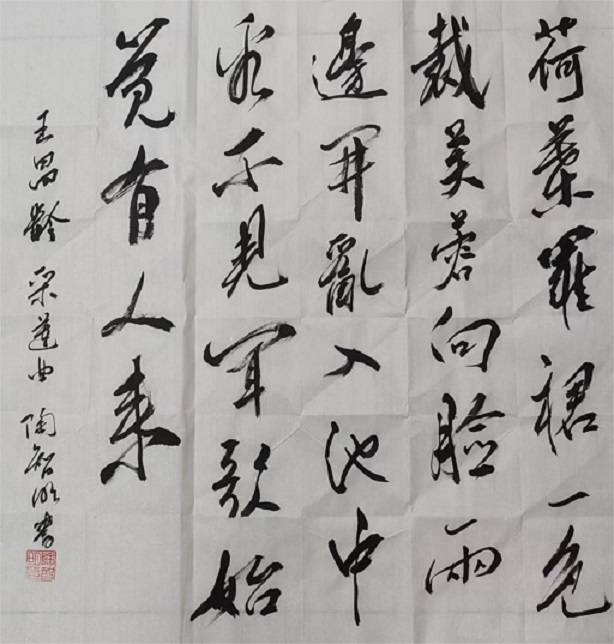 荷葉羅裙一色
裁芙蓉向臉兩
邊開亂入池中
看不見聞歌始
覓有人來
王昌齡采蓮曲陶智書